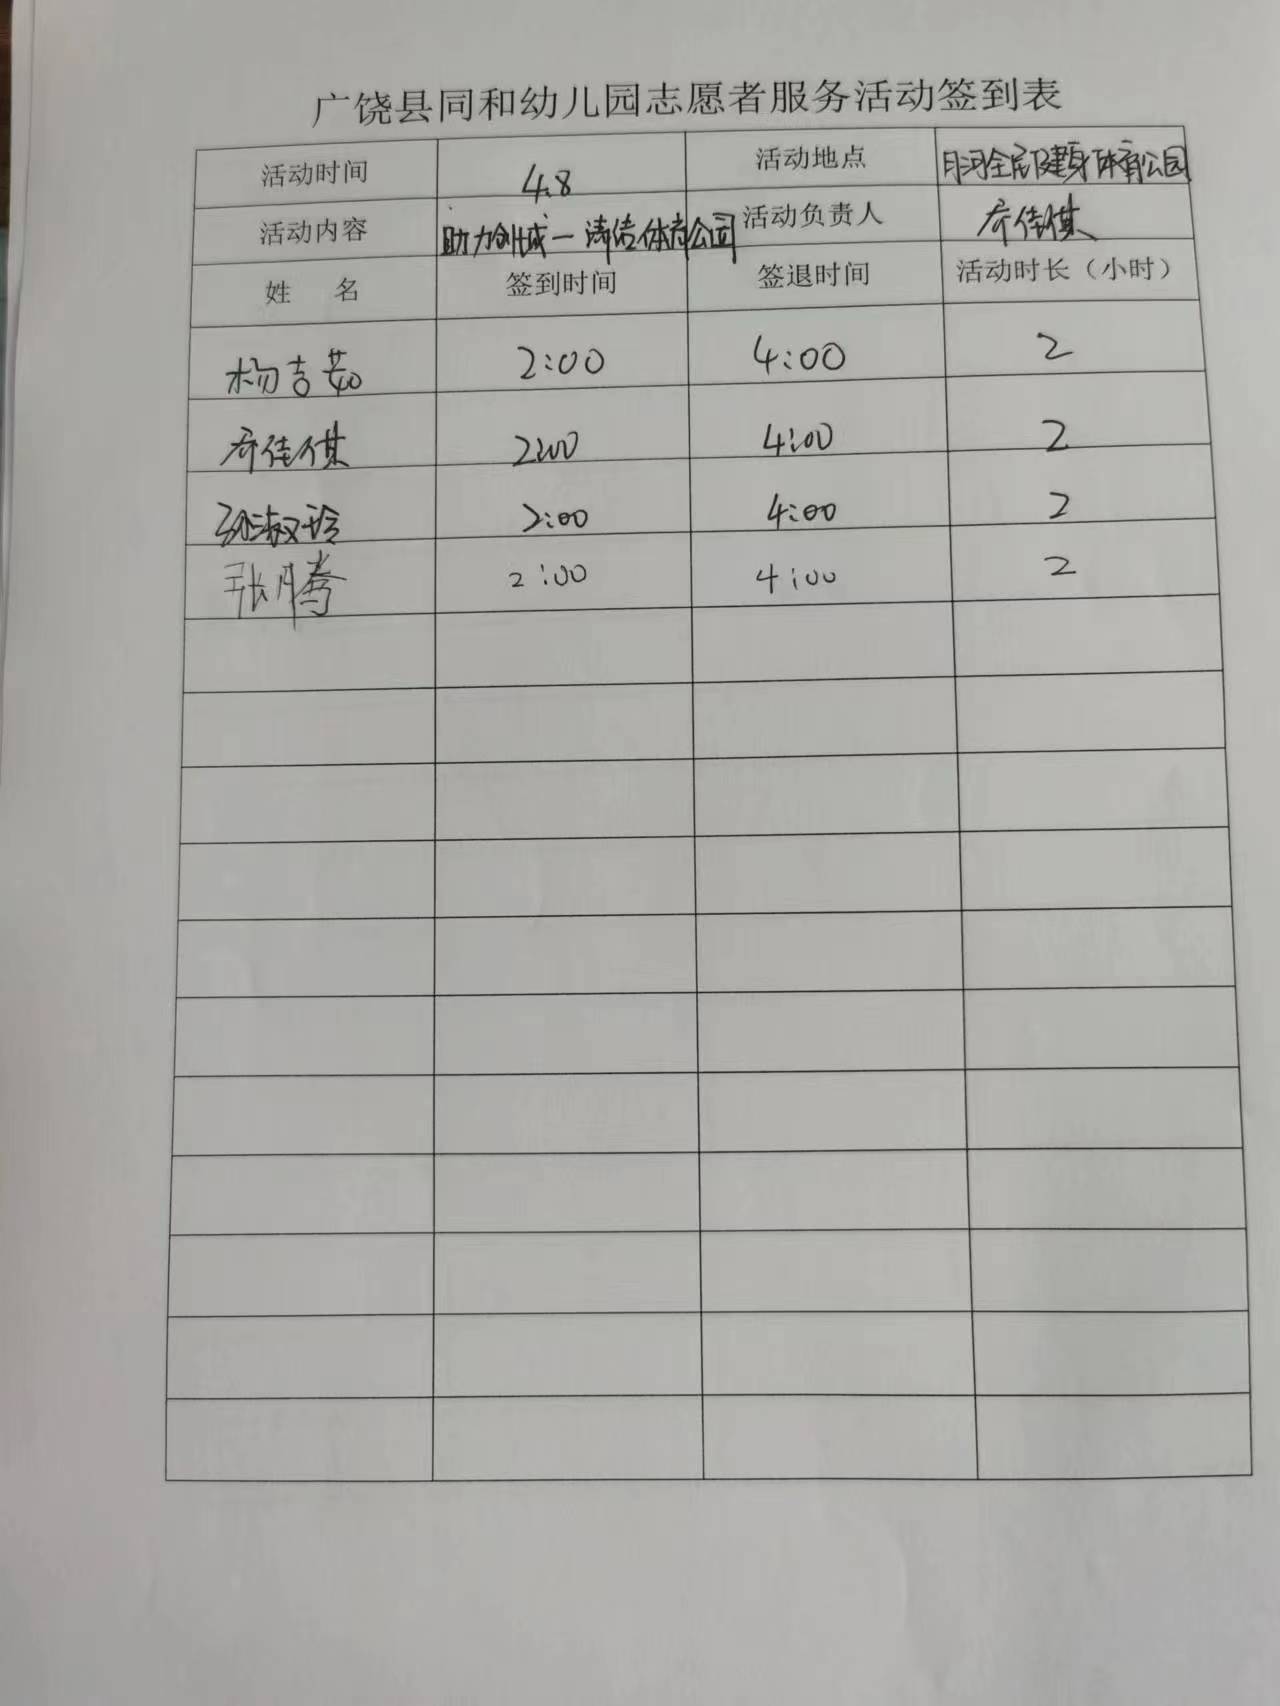 广饶县同和幼儿园志愿者服务活动签到表
活动时间 4.8 活动地点 月河全民健身体育公园
活动内容 助力创城一清洁体育公园 活动负责人 乔佳棋
姓 名 签到时间 签退时间 活动时长（小时）
杨吉茹 2:00 4:00 2
乔佳棋 2:00 4:00 2
孙淑玲 2:00 4:00 2
张腾 2:00 4:00 2